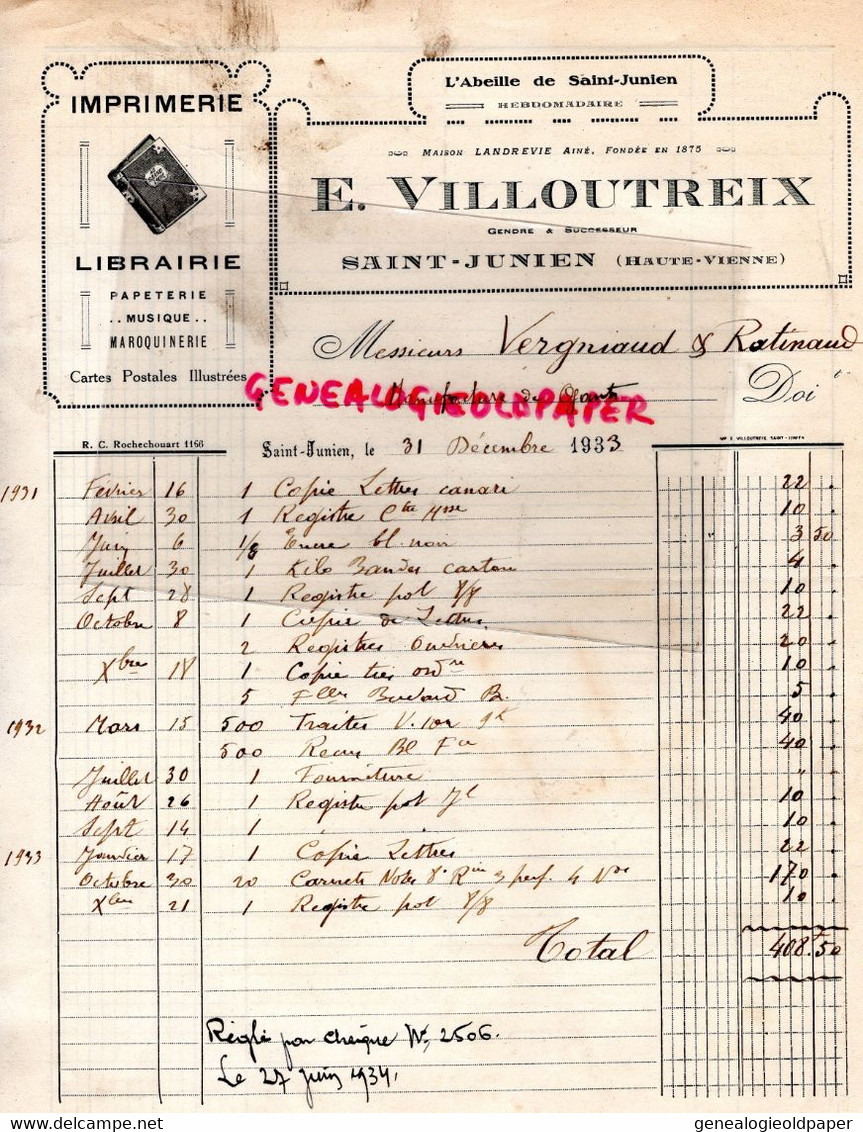 IMPRIMERIE
LIBRAIRIE
PAPETERIE
..MUSIQUE..
MAROQUINERIE
Cartes Postales Illustrées
L'Abeille de Saint-Junien
HEBDOMADAIRE
MAISON LANDREVIE AINÉ, FONDÉE EN 1875
E. VILLOUTREIX
GENDRE & SUCCESSEUR
SAINT-JUNIEN (HAUTE-VIENNE)
Messieurs Vergniaud & Ratinaud
Manufacture de Gants Doi
GENEALOGIEOLDPAPER
R. C. Rochechouart 1166
IMP. E. VILLOUTREIX SAINT-JUNIEN
Saint-Junien, le 31 Décembre 1933
1931 Février 16 1 Copie Lettres canari 22 "
Avril 30 1 Registre Cte 10 "
Juin 6 Encre bl. noir 3 50
Juillet 30 1 Kilo Bandes carton 4 "
Sept 28 1 Registre pot 8/8 10 "
Octobre 8 1 Copie de Lettres 22 "
2 Registres Ouvrières 20 "
Xbre 18 1 Copie 10 "
5 Flles Buvard 5 "
1932 Mars 15 500 Traites 40 "
500 Recus 40 "
Juillet 30 1 Fourniture "
Août 26 1 Registre pot 10 "
Sept 14 1 10 "
1933 Janvier 17 1 Copie Lettres 22 "
Octobre 30 20 Carnets Notes 3 perf. 4 170 "
Xbre 21 1 Registre pot 8/8 10 "
Total 408.50
Réglé par chèque N° 2506.
Le 27 juin 1934.
delcampe.net
genealogieoldpaper